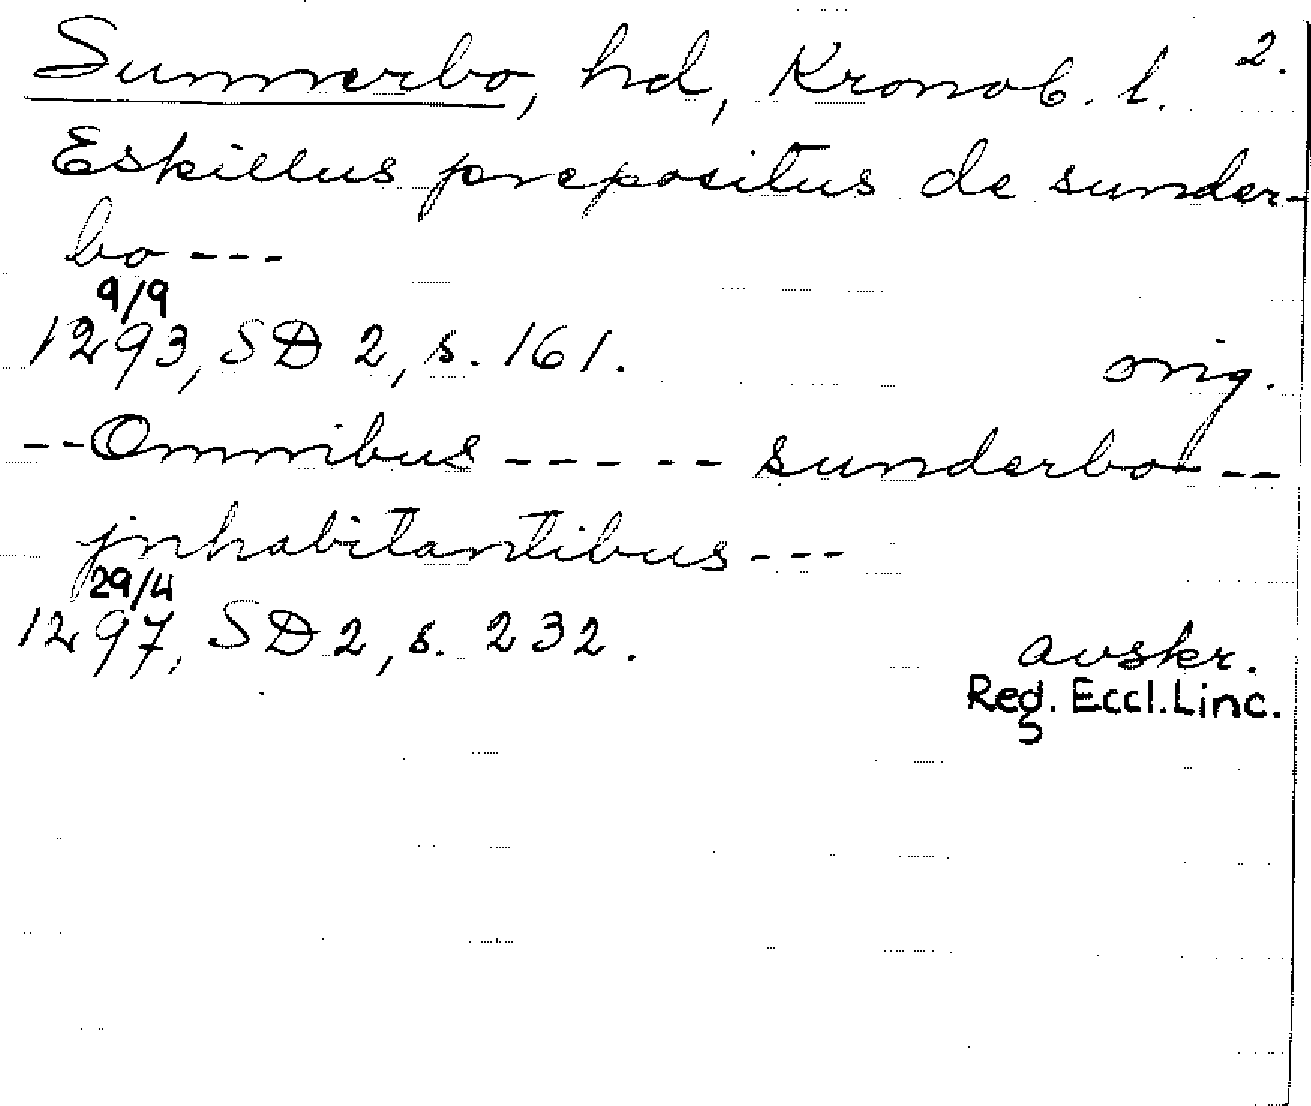 Sunnerbo, hd, Kronob. l. 2.
Eskillus prepositus de sunder-
bo ---
9/9
1293, SD 2, s. 161. orig.
--Omnibus ----- sunderbo ---
jnhabitantibus ---
29/4
1297, SD 2, s. 232. avskr.
Reg. Eccl. Linc.